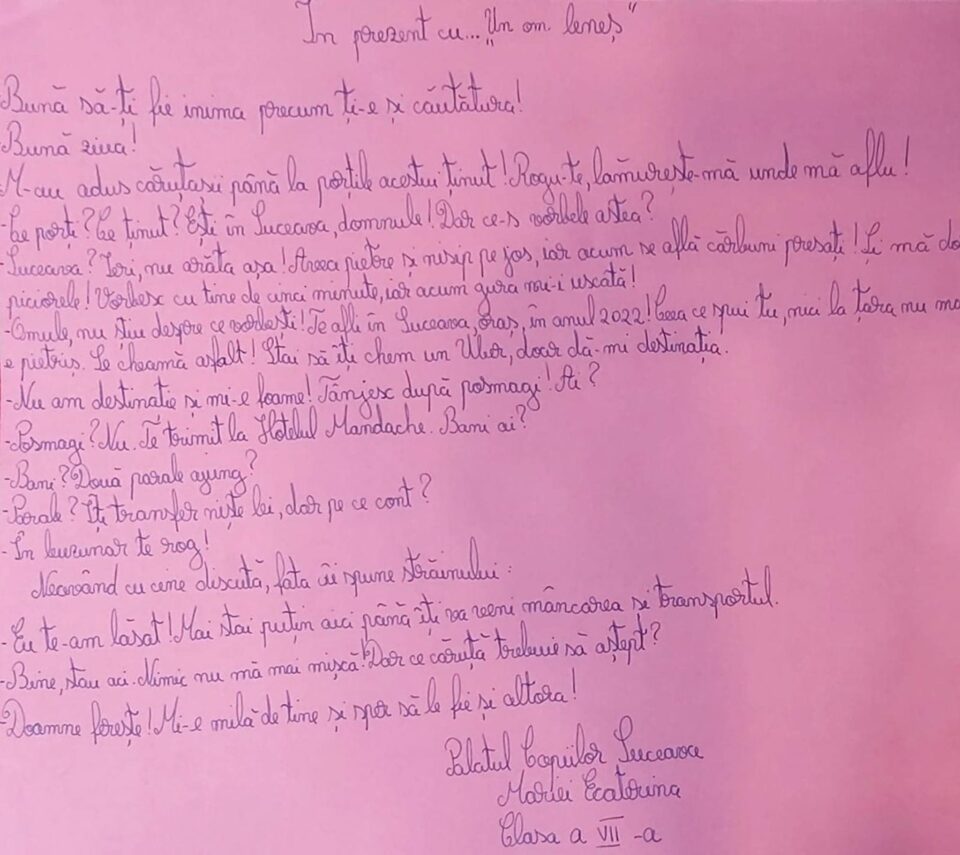 În prezent cu... „Un om leneș”
Bună să-ți fie inima precum ți-e și căutătura!
Bună ziua!
M-au adus căruțașii până la porțile acestui ținut! Rogu-te, lămurește-mă unde mă aflu!
-Ce porți? Ce ținut? Ești în Suceava, domnule! Dar ce-s vorbele astea?
-Suceava? Ieri, nu arăta așa! Avea pietre și nisip pe jos, iar acum se află cărbuni presați! Și mă do
piciorele! Vorbesc cu tine de cinci minute, iar acum gura mi-i uscată!
-Omule, nu știu despre ce vorbești! Te afli în Suceava, oraș, în anul 2022! Ceea ce spui tu, nici la țara nu ma
e pietriș. Se cheamă asfalt! Stai să îți chem un Uber, doar dă-mi destinația.
-Nu am destinatie și mi-e foame! Tânjesc după posmagi! Ai?
-Posmagi? Nu. Te trimit la Hotelul Mandache. Bani ai?
-Bani? Două parale ajung?
-Parale? Îți transfer niște lei, dar pe ce cont?
-În buzunar te rog!
Neavând cu cine discuta, fata îi spune străinului:
-Eu te-am lăsat! Mai stai puțin aici până îți va veni mâncarea si transportul.
-Bine, stau aci. Nimic nu mă mai mișcă! Dar ce căruță trebuie să aștept?
-Doamne ferește! Mi-e milă de tine și sper să le fie și altora!
Palatul Copiilor Suceava
Mariei Ecaterina
Clasa a VII-a